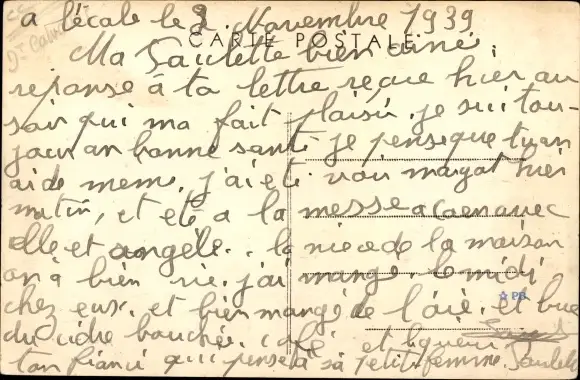 a l'école le 2 Novembre 1939
CARTE POSTALE
Ma Paulette bien aimé,
reponse a ta lettre reçue hier au
soir qui ma fait plaisir. je sui tou-
jour an bonne santé je pense que tu an
aide meme, j'ai eté voir margot hier
matin, et eté a la messe a Caen avec
elle et angéle.. la niece de la maison
on a bien rie, j'ai mangé le midi
chez eux. et bien mangé de l'oie. et bue
PB
du cidre bouché. café et liqueur
ton fiancé qui pense a sa petit femme. Paulette